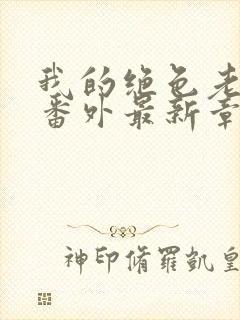 我的绝色老
番外最新章
神印脩羅凱皇